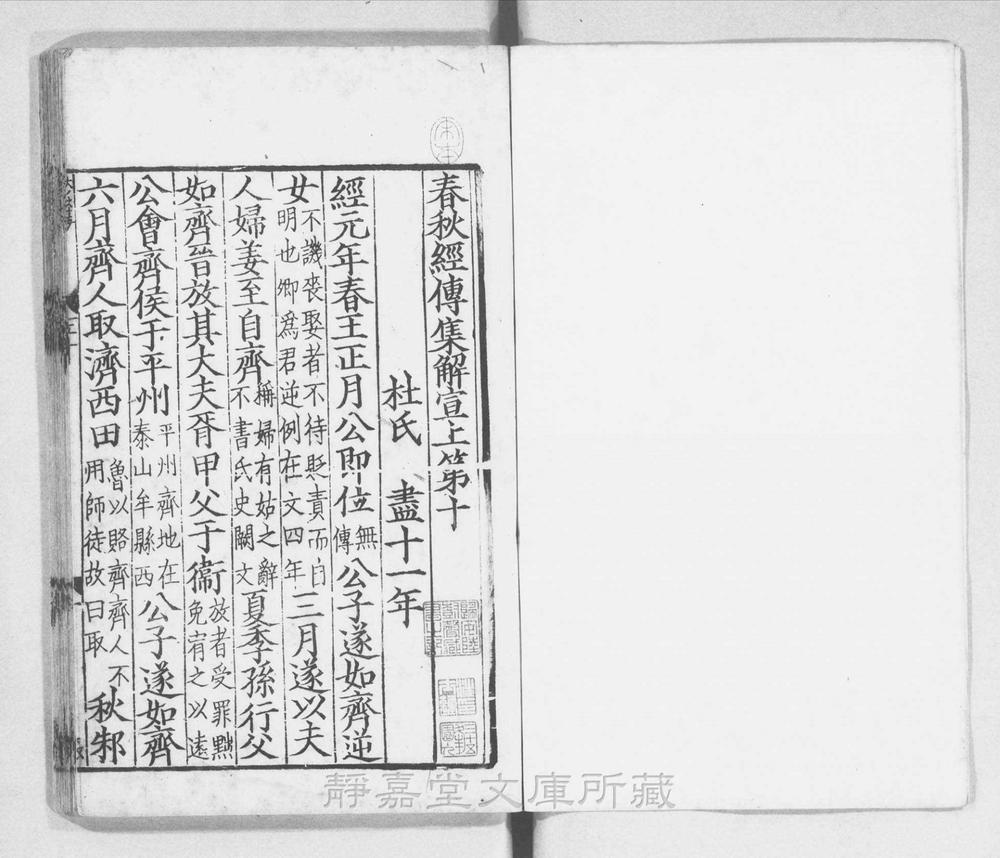 春秋經傳集解宣上第十
杜氏 盡十一年
經元年春王正月公即位無傳公子遂如齊逆
女不譏喪娶者不待貶責而自明也卿爲君逆例在文四年三月遂以夫
人婦姜至自齊稱婦有姑之辭不書氏史闕文夏季孫行父
如齊晉放其大夫胥甲父于衞放者受罪黜免宥之以遠
公會齊侯于平州平州齊地在泰山牟縣西公子遂如齊
六月齊人取濟西田魯以賂齊齊人不用師徒故曰取秋邾
靜嘉堂文庫所藏